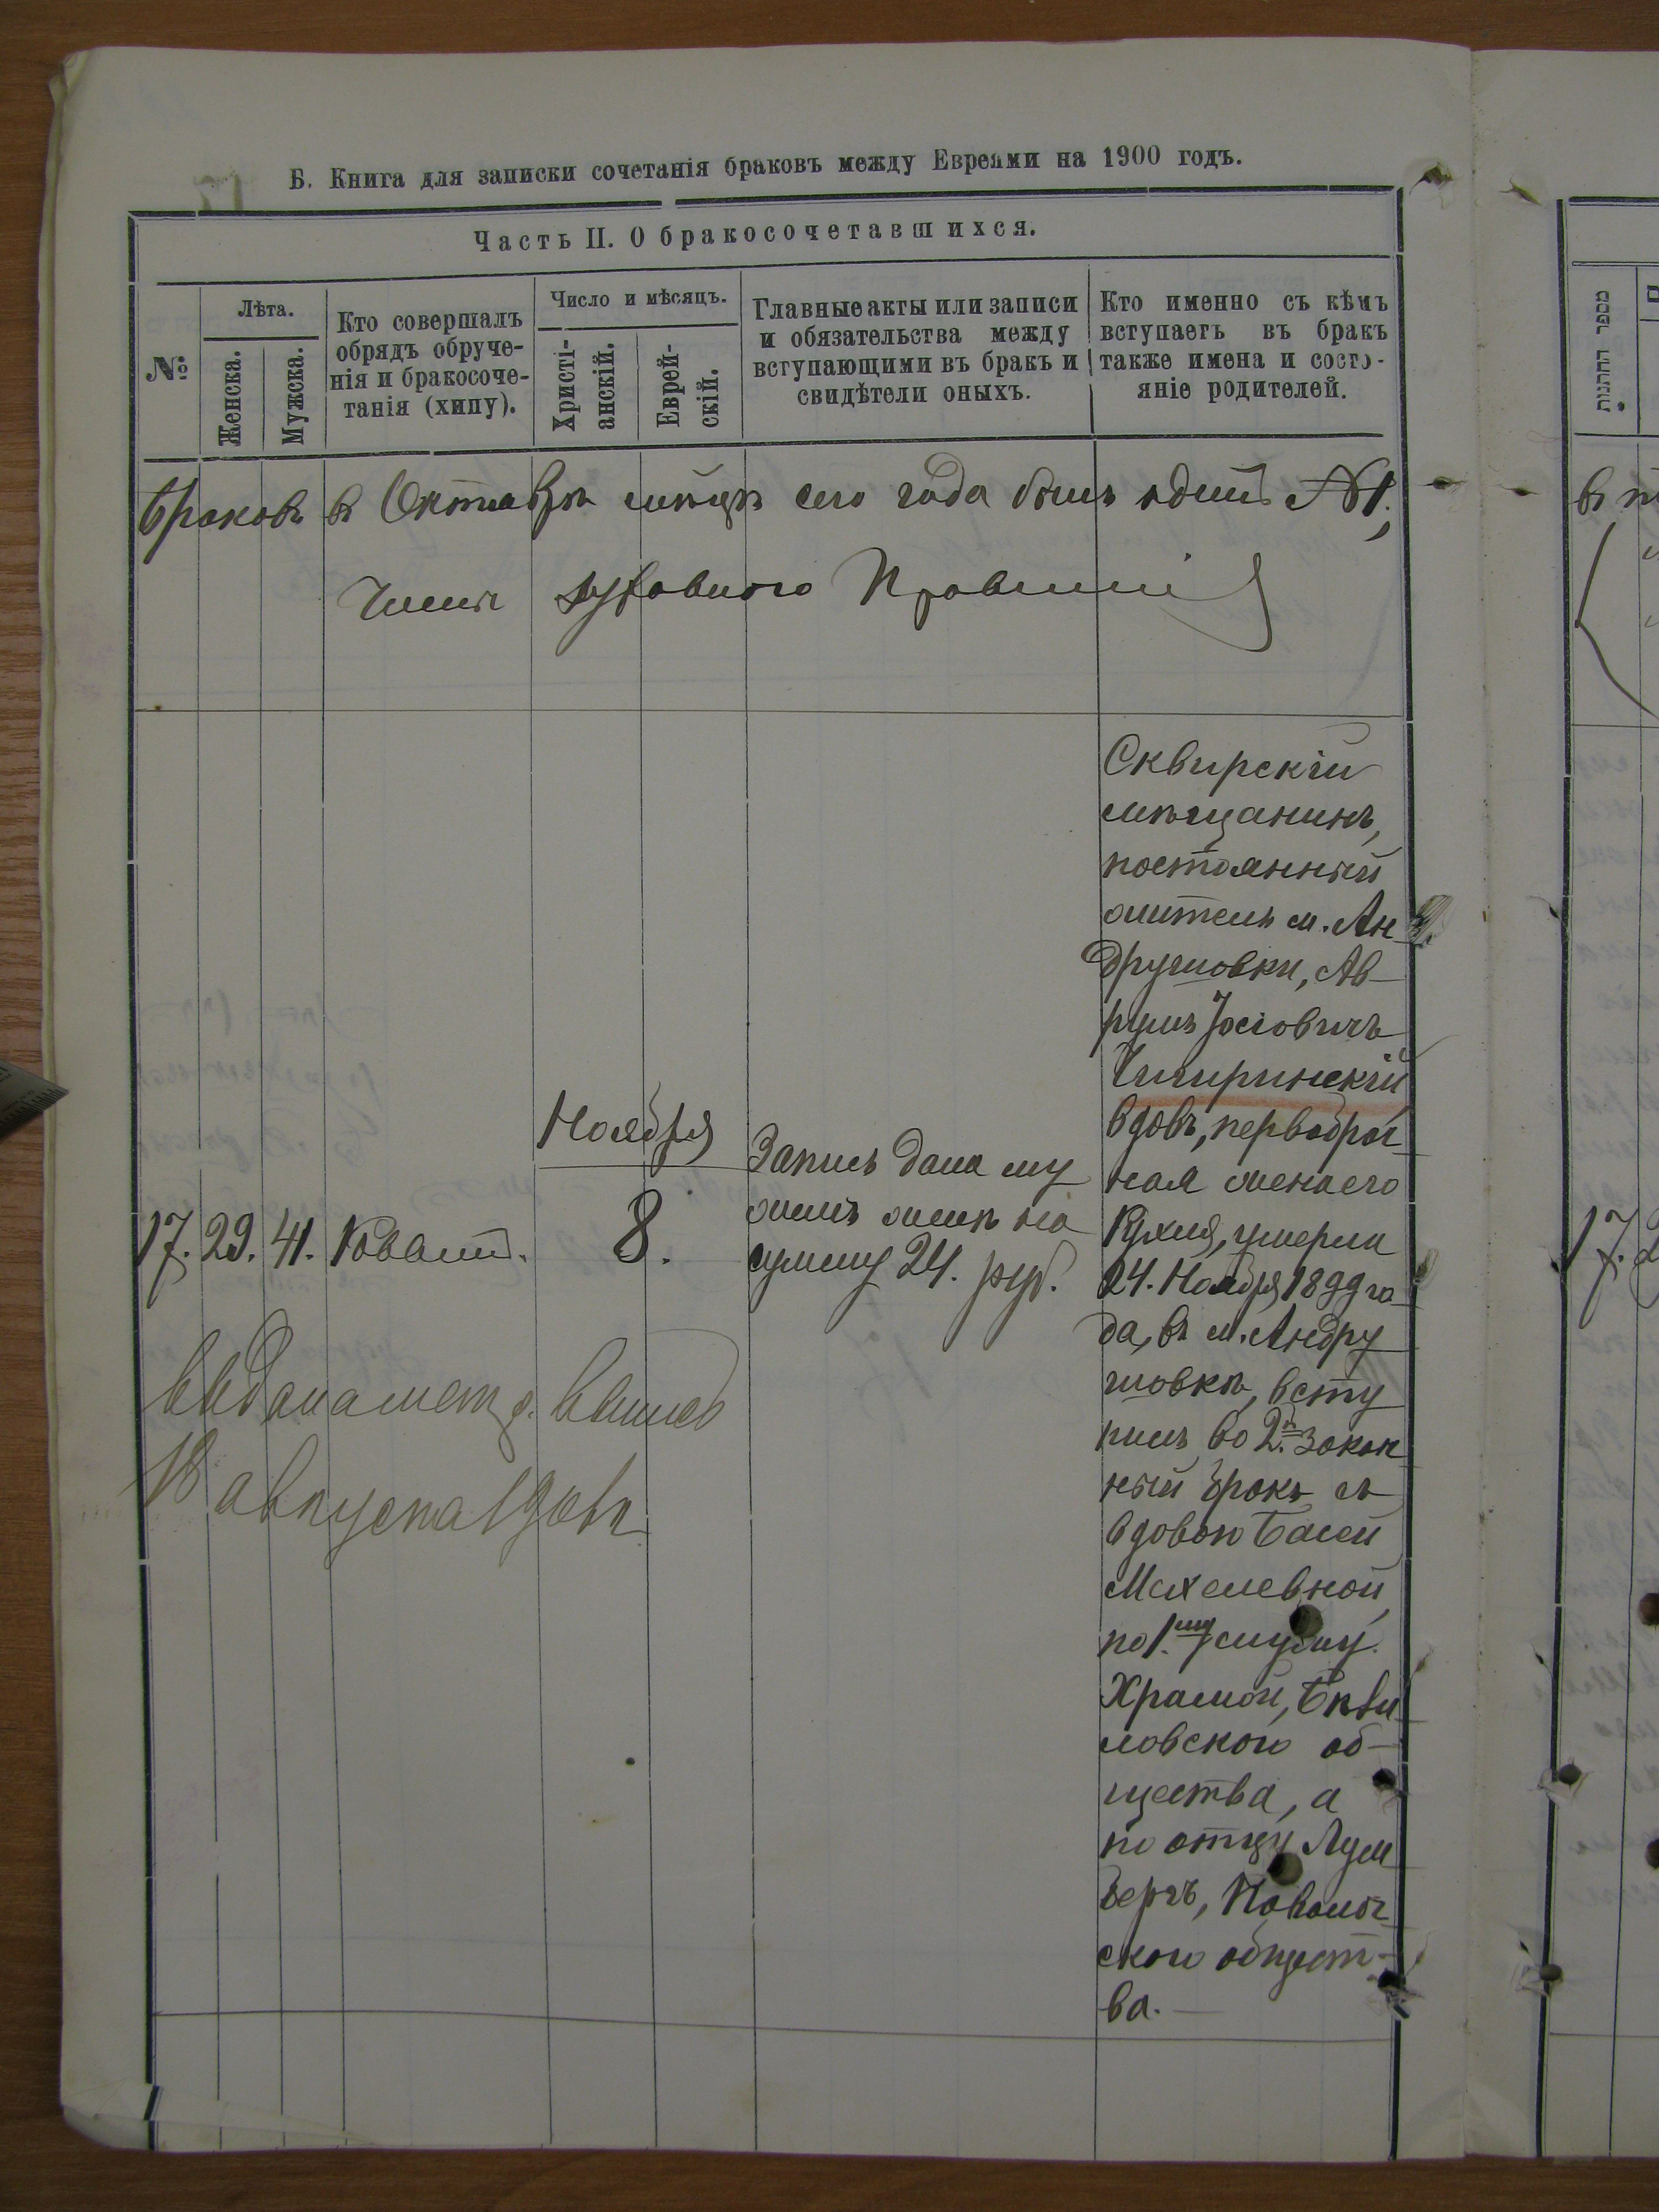 Б. Книга для записки сочетанія браковъ между Евреями на 1900 годъ.
Часть II. О бракосочетавшихся.
№
Лѣта.
Женска.
Мужска.
Кто совершалъ
обрядъ обруче-
нія и бракосоче-
танія (хипу).
Число и мѣсяцъ.
Христі-
анскій.
Еврей-
скій.
Главные акты или записи
и обязательства между
вступающими въ бракъ и
свидѣтели оныхъ.
Кто именно съ кѣмъ
вступаетъ въ бракъ
также имена и состо-
яніе родителей.
Браковъ въ Октябрѣ мѣсяцѣ сего года былъ одинъ №1;
Члены Духовного Правленія
17. 29. 41.
Ноября
8.
Запись дана му
жемъ женѣ на
сумму 24. руб.
Сквирскій
мѣщанинъ,
постоянный
житель м. Ан-
друшовки, Ав-
румъ Іосіовичъ
Чигиринскій
вдовъ, первобрач-
ная жена его
Рухля, умерла
24. Ноября 1899 го-
да, въ м. Андру
шовкѣ, всту
пилъ во 2й закон
ный бракъ съ
вдовою Басей
Михелевной,
по 1.му мужу.
Храмой,
ловского об-
щества, а
по отцу Лум
бергъ, Паволоч
ского общест-
ва.
18 августа
מספר החתנות
17.